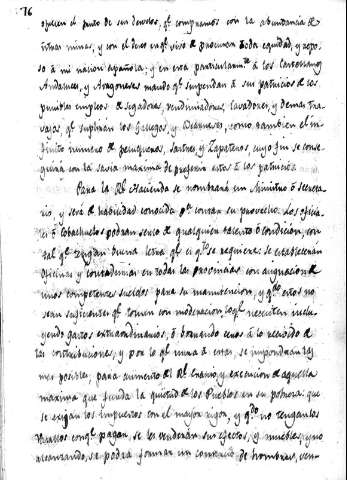 76
el fruto de sus desvelos, qe. compramos con la abundancia de
ntras minas, y con el deseo en qe. vivo de procurar toda equidad, y repo-
so â mi nacion española; y en esta particularmte. â los
Andaluces, y Aragoneses mando qe. suspendan â sus patricios de los
penibles empleos de segadores, vendimiadores, cavadores, y demas tra-
vajos, qe. supliran los Gallegos, y como tambien el in-
finito numero de peluqueros, sastres, y Zapateros, cuyo fin se conse-
guirá con la savia maxima de preferir estos â los patricios.
Para la Rl. Hacienda se nombrará un Ministro ô secreta-
rio, y será de habilidad conocida pa. con su provecho. Los oficia-
les ô Cobachuelos podran serlo de qualquiera talento ô condicion, con
tal qe. tengan buena letra qe. es qto. se requiere: se estableceran
oficinas y contadurias en todas las Provincias con asignacion de
unos competentes sueldos para su manutencion, y qdo. estos no
sean suficientes qe. tomen con moderacion lo qe. necesiten inclu-
yendo gastos extraordinarios, ô borrando ceros â lo recibido de
las contribuciones; y por lo qe. mira â estas se impondrán las
mas posibles, para aumento del Rl. Erario, y execucion de aquella
maxima que funda la quietud de los Pueblos en su pobreza: que
se exijan los impuestos con el mayor rigor, y qdo. no tengan los
Vasallos con qe. pagar, se les venderán sus efectos, y muebles, y no
alcanzando, se podrá formar un comercio de hombres, ven-